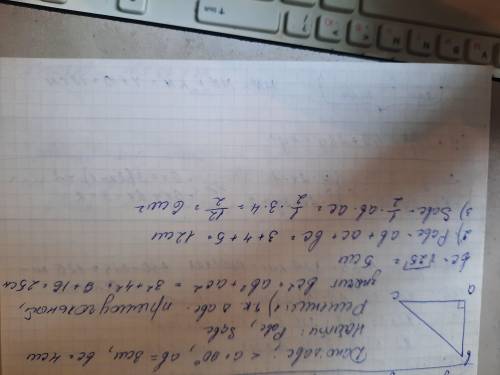 Дано: Δabc; <a=90°, ab=3см, bc=4см
Найти: Pabc, Sabc
Решение: 1) т.к Δ abc - прямоугольный,
значит bc²=ab²+ac²=3²+4²=9+16=25см
bc=√25=5см
2) Pabc=ab+ac+bc=3+4+5=12см
3) Sabc=1/2·ab·ac=1/2·3·4=12/2=6см²
a
c
b